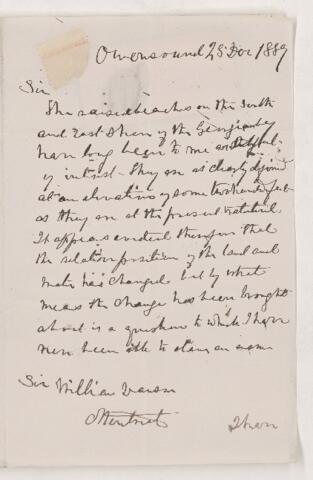 Owensound 25 Dec 1889
Sir
The raised beaches on the South
and East Shore of the Georgian bay
have long been to me
of interest - They are as clearly defined
at an elevation of some two hundred feet
as they are at the present waterline.
It appears evident therefore that
the relative position of the land and
water has changed but by what
means the change has been brought
about is a question to which I have
never been able to obtain an answer
Sir William Dawson
Montreal
I have